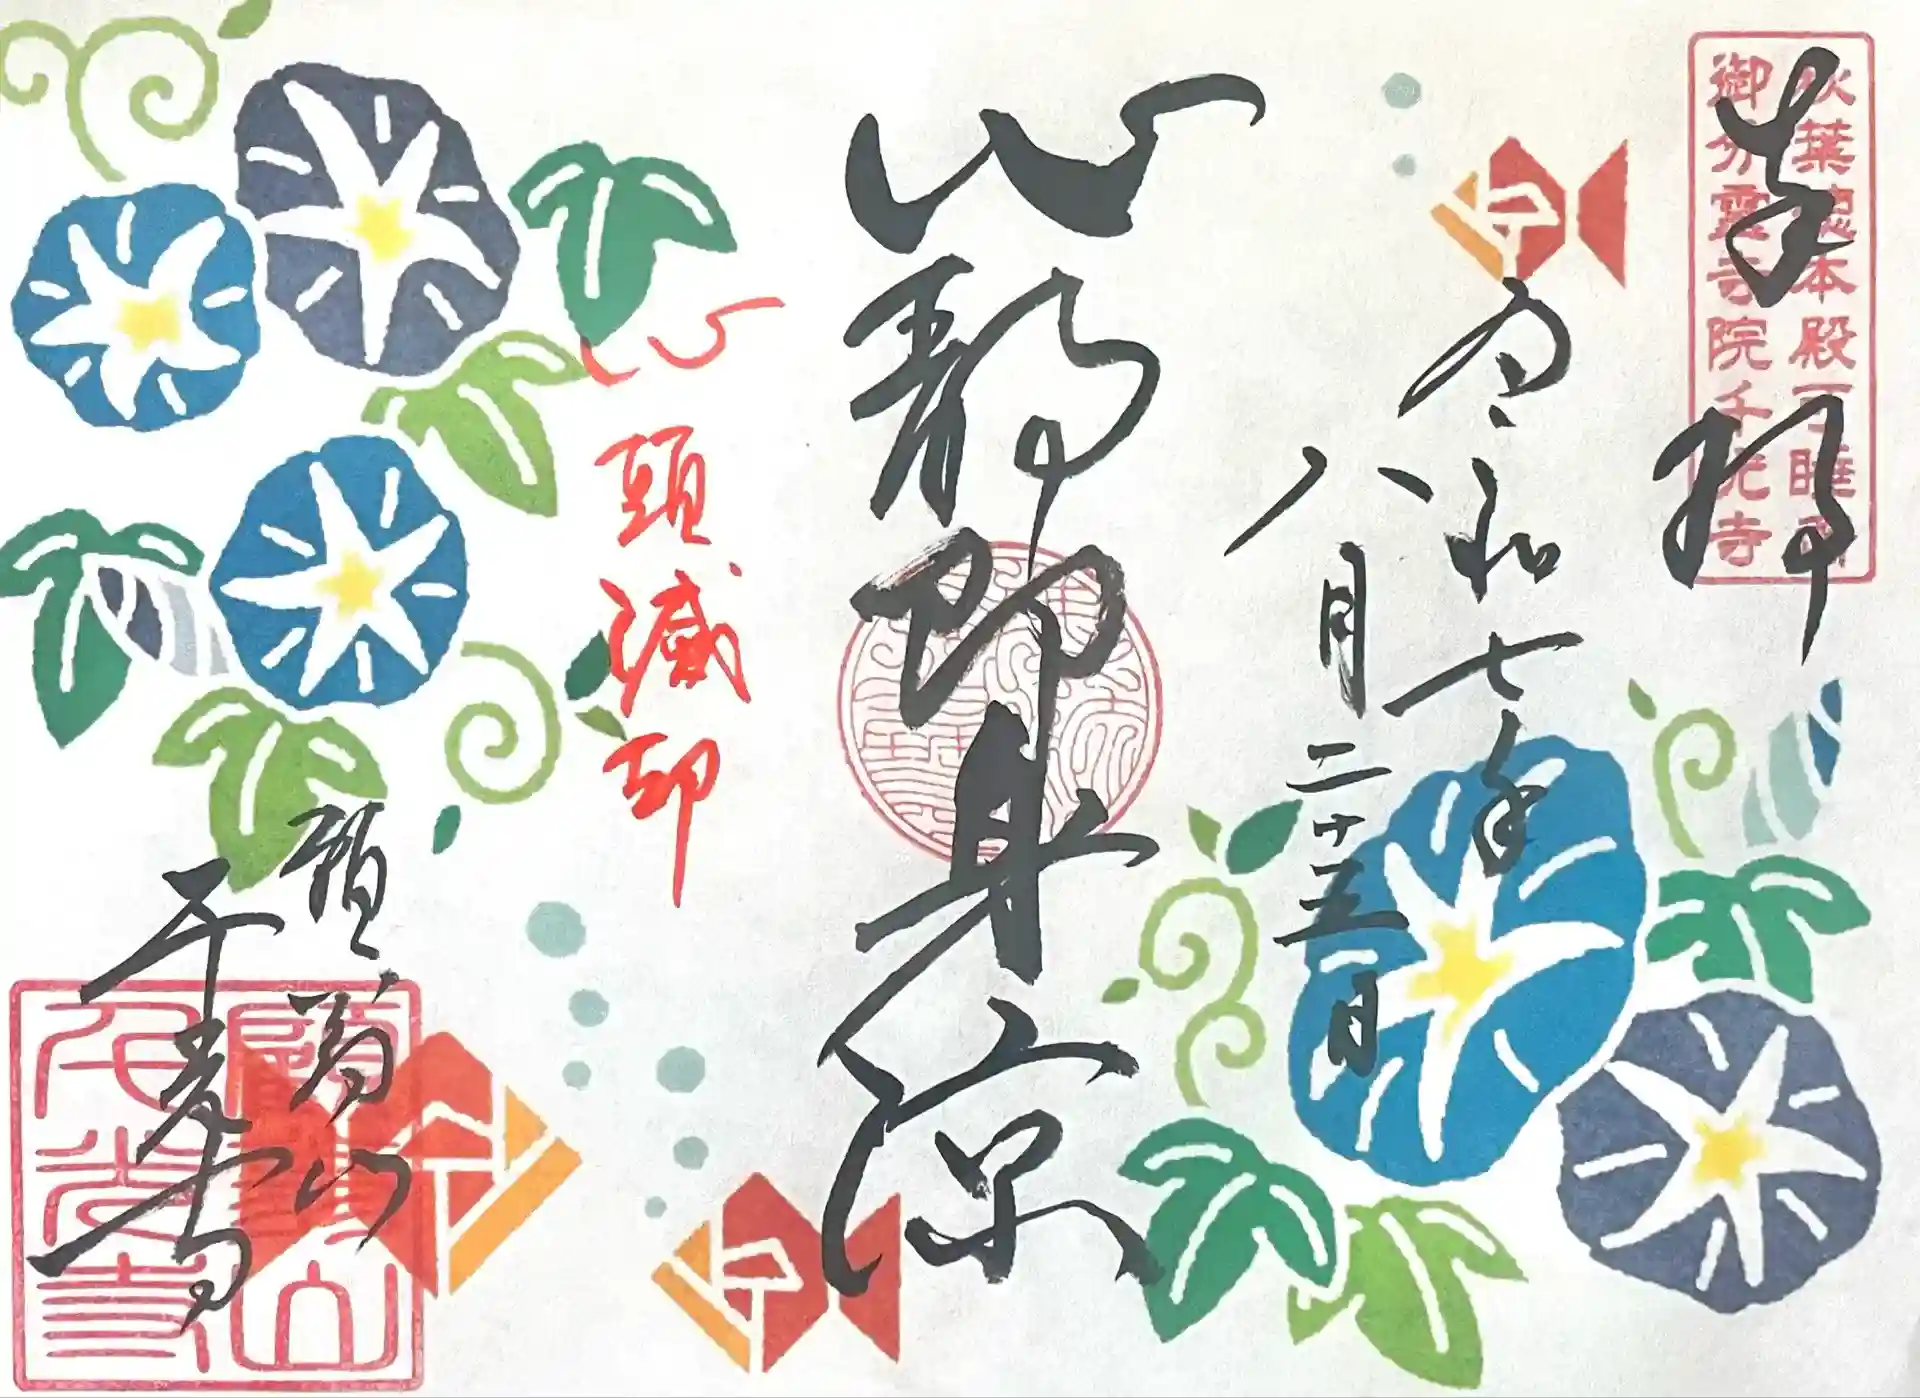 奉拝
秋葉總本殿可睡斎
御分霊寺院千光寺
令和七年
八月二十五日
心静即身涼
心頭滅却
千光寺